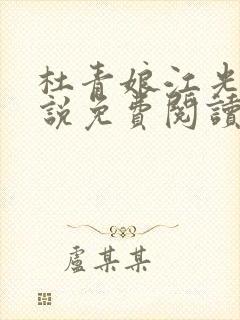 杜青娘江光
說免費閱讀
盧某某